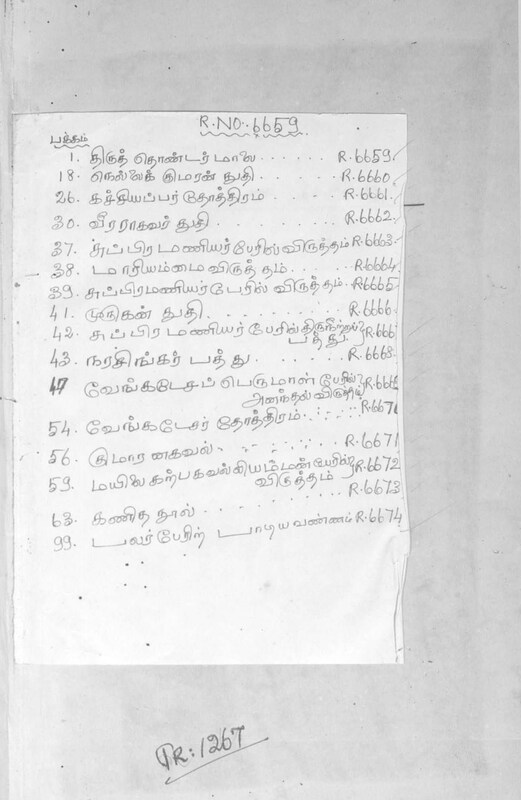 R.NO. 6659
பக்கம்
1. திருத் தொண்டர் மாலை ...... R.6659
18. நெல்லைக் குமரன் துதி ...... R.6660
26. கச்சியப்பர் தோத்திரம் ...... R.6661
30. வீரராகவர் துதி ...... R.6662
37. சுப்பிரமணியர் பேரில் விருத்தம் R.6663
38. மாரியம்மை விருத்தம் ...... R.6664
39. சுப்பிரமணியர் பேரில் விருத்தம் .. R.6665
41. முருகன் துதி ...... R.6666
42. சுப்பிர மணியர் பேரில் திருநீற்றுப் R.666
பத்து
43. நரசிங்கர் பத்து ...... R.6668
47 வேங்கடேசப் பெருமாள் பேரில்
அனந்தல் விருத்தம்
54. வேங்கடேசர் தோத்திரம் ...... R.667
56. குமார னகவல் ...... R.6671
59. மயிலை கற்பகவல்லியம்மன் பேரில் R.6672
விருத்தம்
63. கணித நூல் ...... R.6673
99. பலர் பேரிற் பாடிய வண்ணம் R.6674
TR: 1267